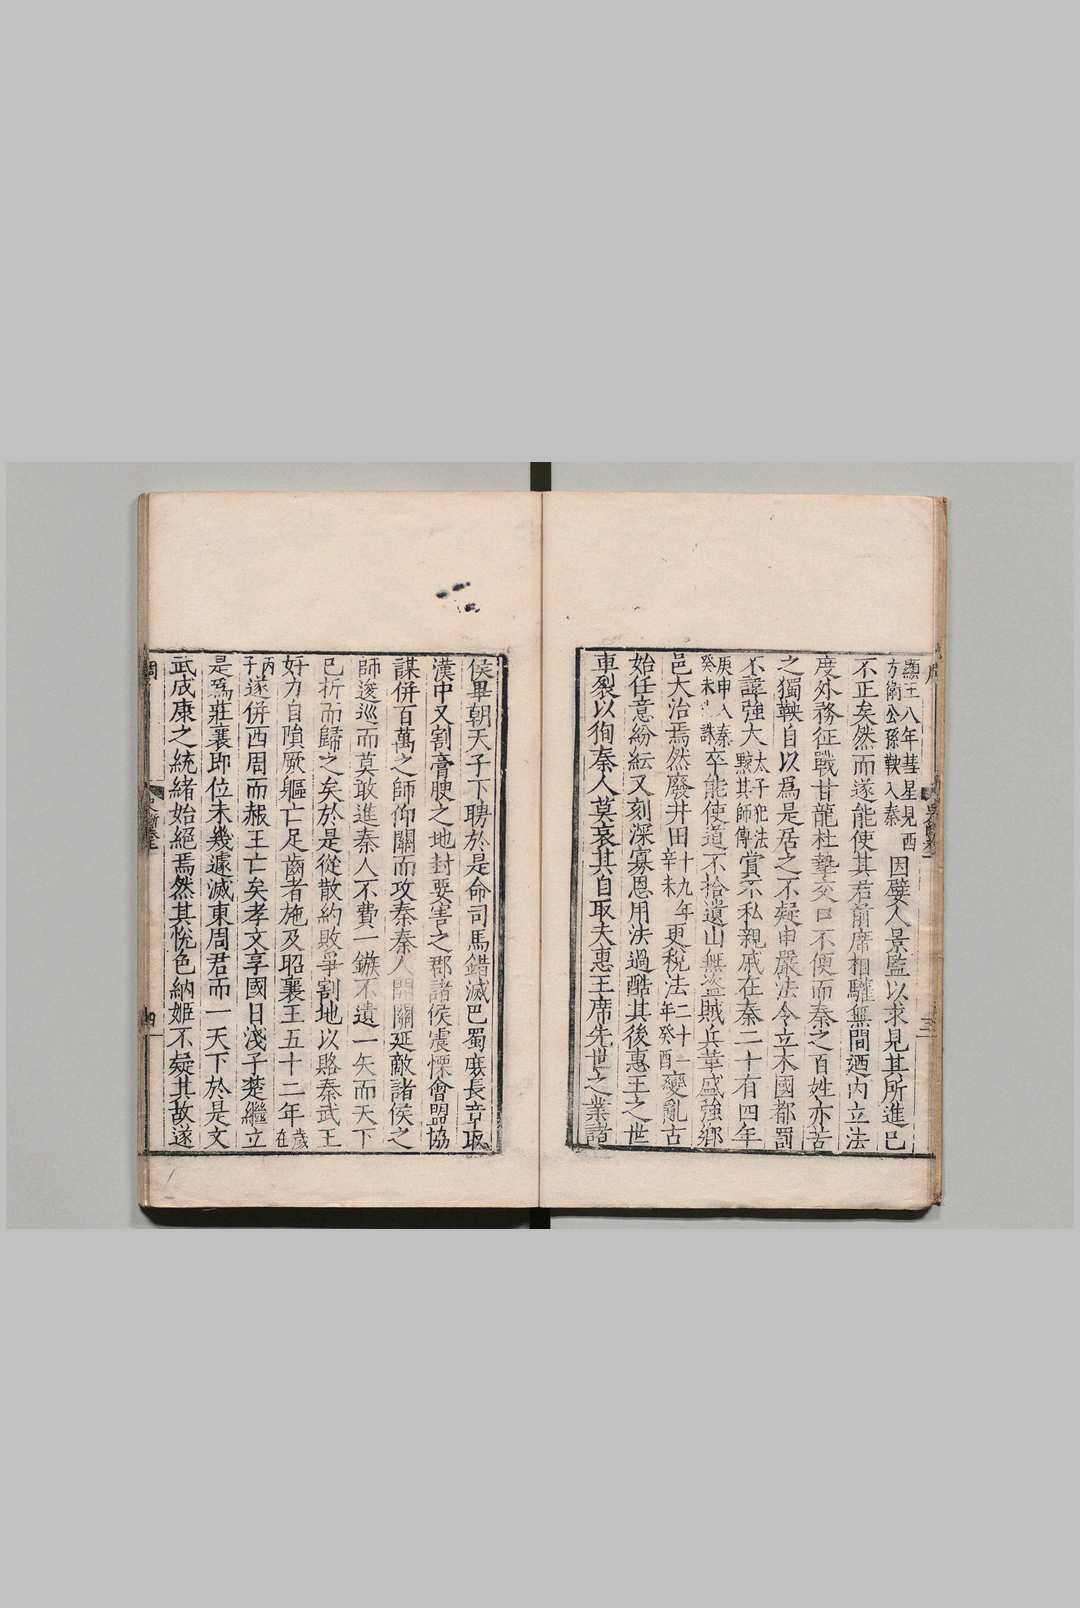 顯王八年彗星見西方衛公孫鞅入秦因嬖人景監以求見其所進已
不正矣然而遂能使其君前席相驩無間廼内立法
度外務征戰甘龍杜摯交口不便而秦之百姓亦苦
之獨鞅自以為是居之不疑申嚴法令立木國都罰
不諱強大太子犯法黥其師傅賞不私親戚在秦二十有四年
庚申入秦癸未誅卒能使道不拾遺山無盜賊兵革盛強鄉
邑大治焉然廢井田十九年辛未更稅法二十一年癸酉變亂古
始任意紛紜又刻深寡恩用法過酷其後惠王之世
車裂以徇秦人莫哀其自取夫惠王席先世之業諸
侯畢朝天子下聘於是命司馬錯滅巴蜀庶長章取
漢中又割膏腴之地封要害之郡諸侯震慄會盟協
謀併百萬之師仰關而攻秦秦人開關延敵諸侯之
師逡巡而莫敢進秦人不費一鏃不遺一矢而天下
已折而歸之矣於是從散約敗爭割地以賂秦武王
好力自隕厥軀亡足齒者施及昭襄王五十二年歲在
丙子遂併西周而赧王亡矣孝文享國日淺子楚繼立
是為莊襄即位未幾遽滅東周君而一天下於是文
武成康之統緒始絕焉然其悅色納姬不疑其故遂
周
史斷卷
四